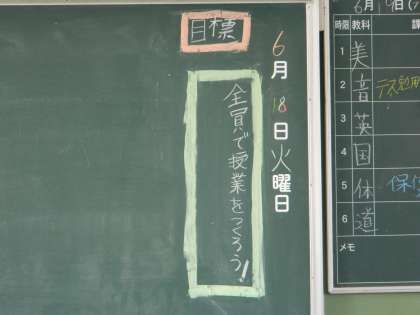 目標
6月18日火曜日
全員で授業をつくろう!
6月19日(
時限 教科 課
1 美
2 音 テス勉用
3 英
4 国
5 体 保健
6 道
メモ